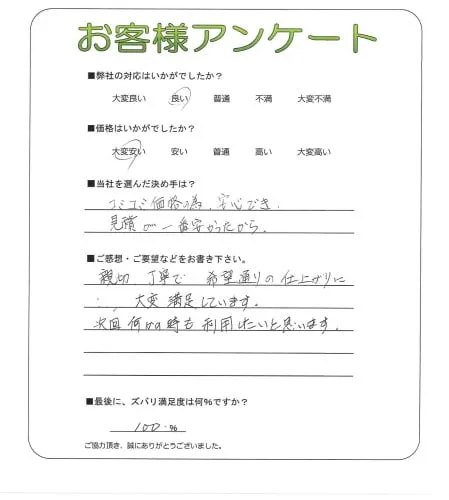 お客様アンケート
■弊社の対応はいかがでしたか？
大変良い 良い 普通 不満 大変不満
■価格はいかがでしたか？
大変安い 安い 普通 高い 大変高い
■当社を選んだ決め手は？
コミコミ価格の為、安心でき、
見積が一番安かったから。
■ご感想・ご要望などをお書き下さい。
親切、丁寧で 希望通りの仕上がりに
大変満足しています。
次回何かの時も利用したいと思います。
■最後に、ズバリ満足度は何%ですか？
100 %
ご協力頂き、誠にありがとうございました。